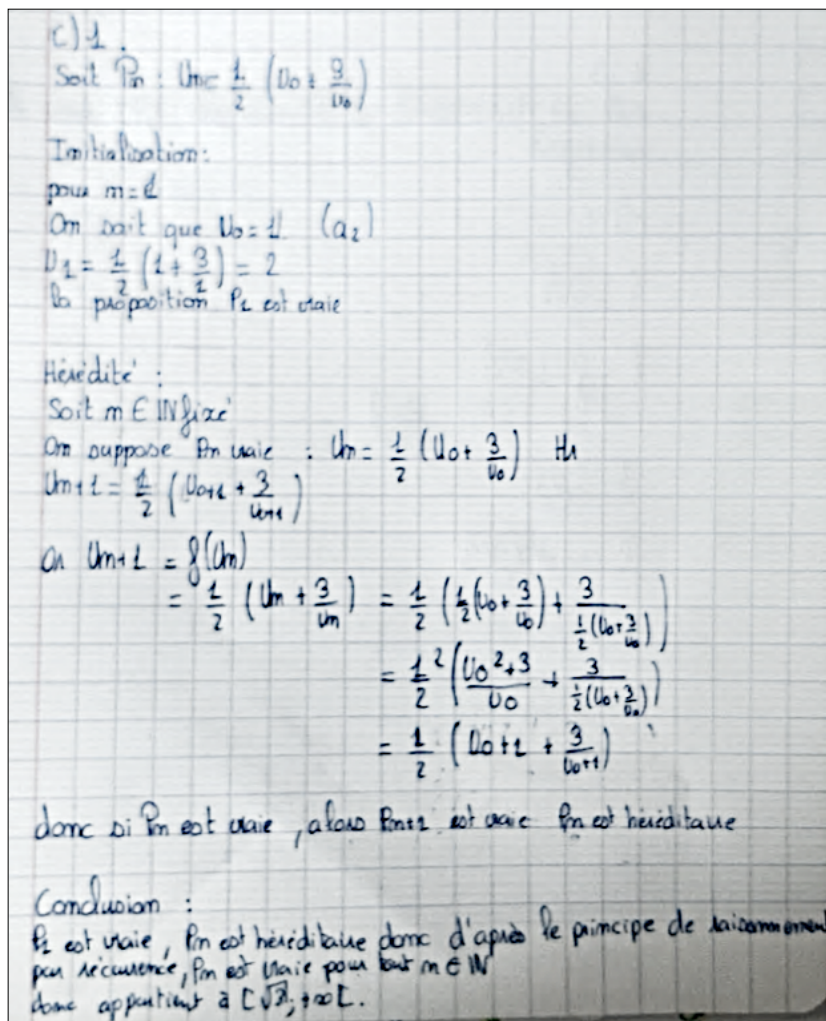 C) 1.
Soit Pn : Un = 1/2 (U0 + 3/U0)
Initialisation :
pour n = 1
On sait que U0 = 1. (a2)
U1 = 1/2 (1 + 3/1) = 2
la proposition P1 est vraie
Hérédité :
Soit n ∈ ℕ fixé
On suppose Pn vraie : Un = 1/2 (U0 + 3/U0) Hr
Un+1 = 1/2 (U0+1 + 3/U0+1)
Or Un+1 = f(Un)
= 1/2 (Un + 3/Un) = 1/2 (1/2(U0 + 3/U0) + 3/(1/2(U0 + 3/U0)))
= 1/2² ((U0² + 3)/U0 + 3/(1/2(U0 + 3/U0)))
= 1/2 (U0+1 + 3/U0+1)
donc si Pn est vraie, alors Pn+1 est vraie Pn est héréditaire
Conclusion :
P1 est vraie, Pn est héréditaire donc d'après le principe de raisonnement
par récurence, Pn est vraie pour tout n ∈ ℕ
donc appartient à [√3; +∞[.